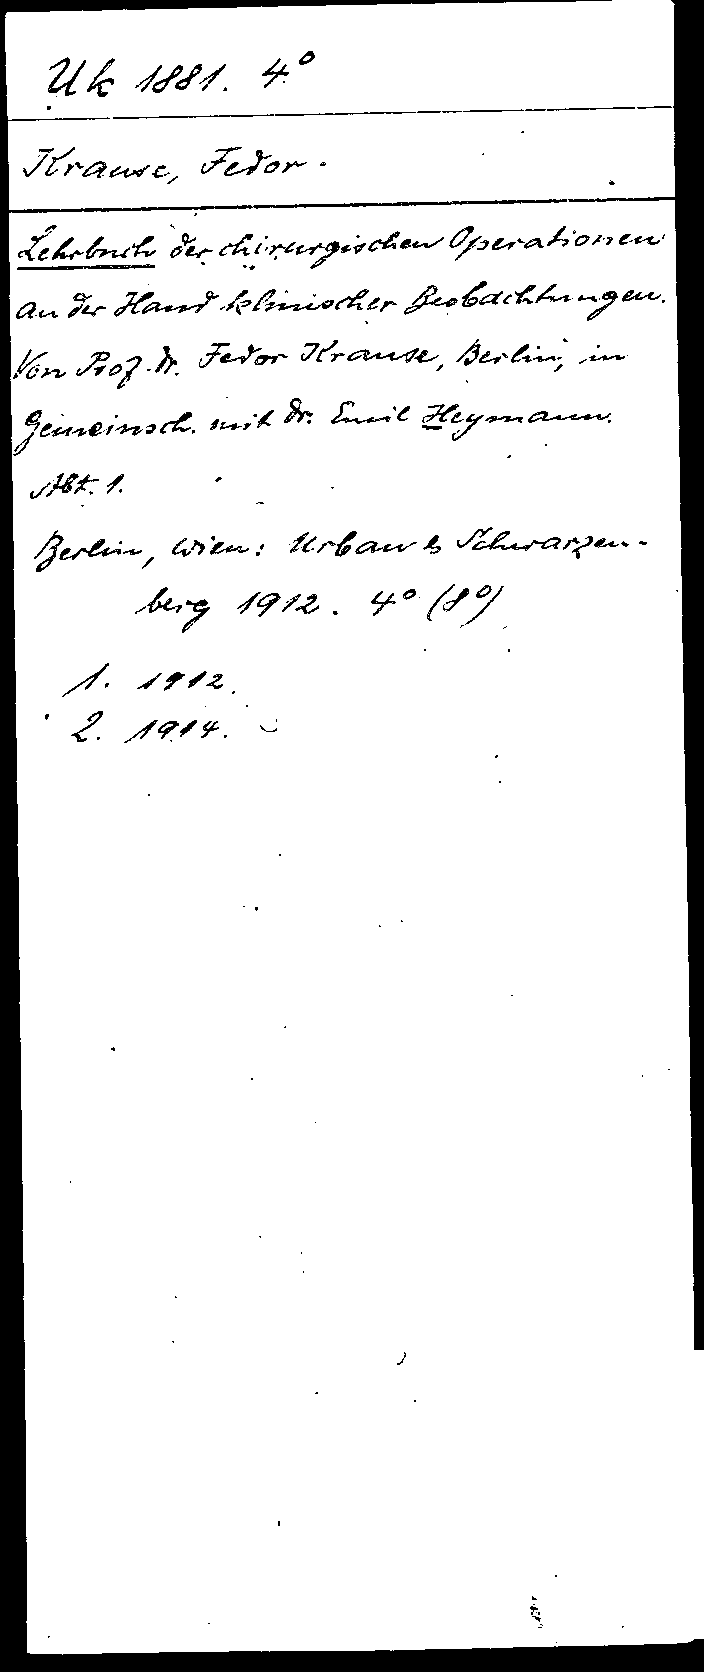 Uk 1881. 4°
Krause, Fedor.
Lehrbuch der chirurgischen Operationen
an der Hand klinischer Beobachtungen.
Von Prof. Dr. Fedor Krause, Berlin, in
Gemeinsch. mit Dr. Emil Heymann.
Abt. 1.
Berlin, Wien: Urban & Schwarzen-
berg 1912. 4° (8°)
1. 1912.
2. 1914.